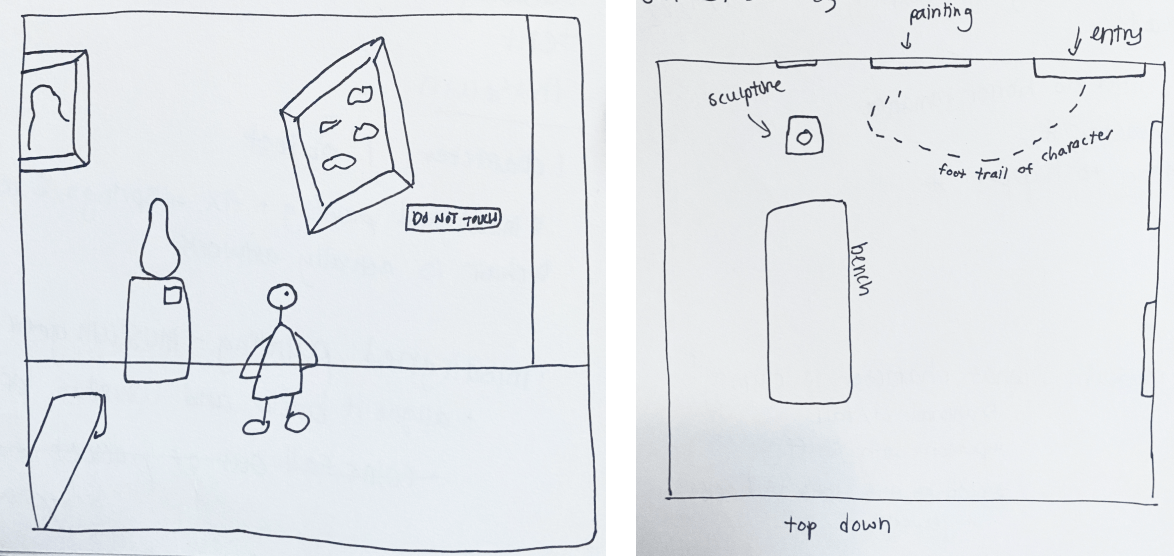 DO NOT TOUCH
painting
entry
sculpture
foot trail of character
bench
top down